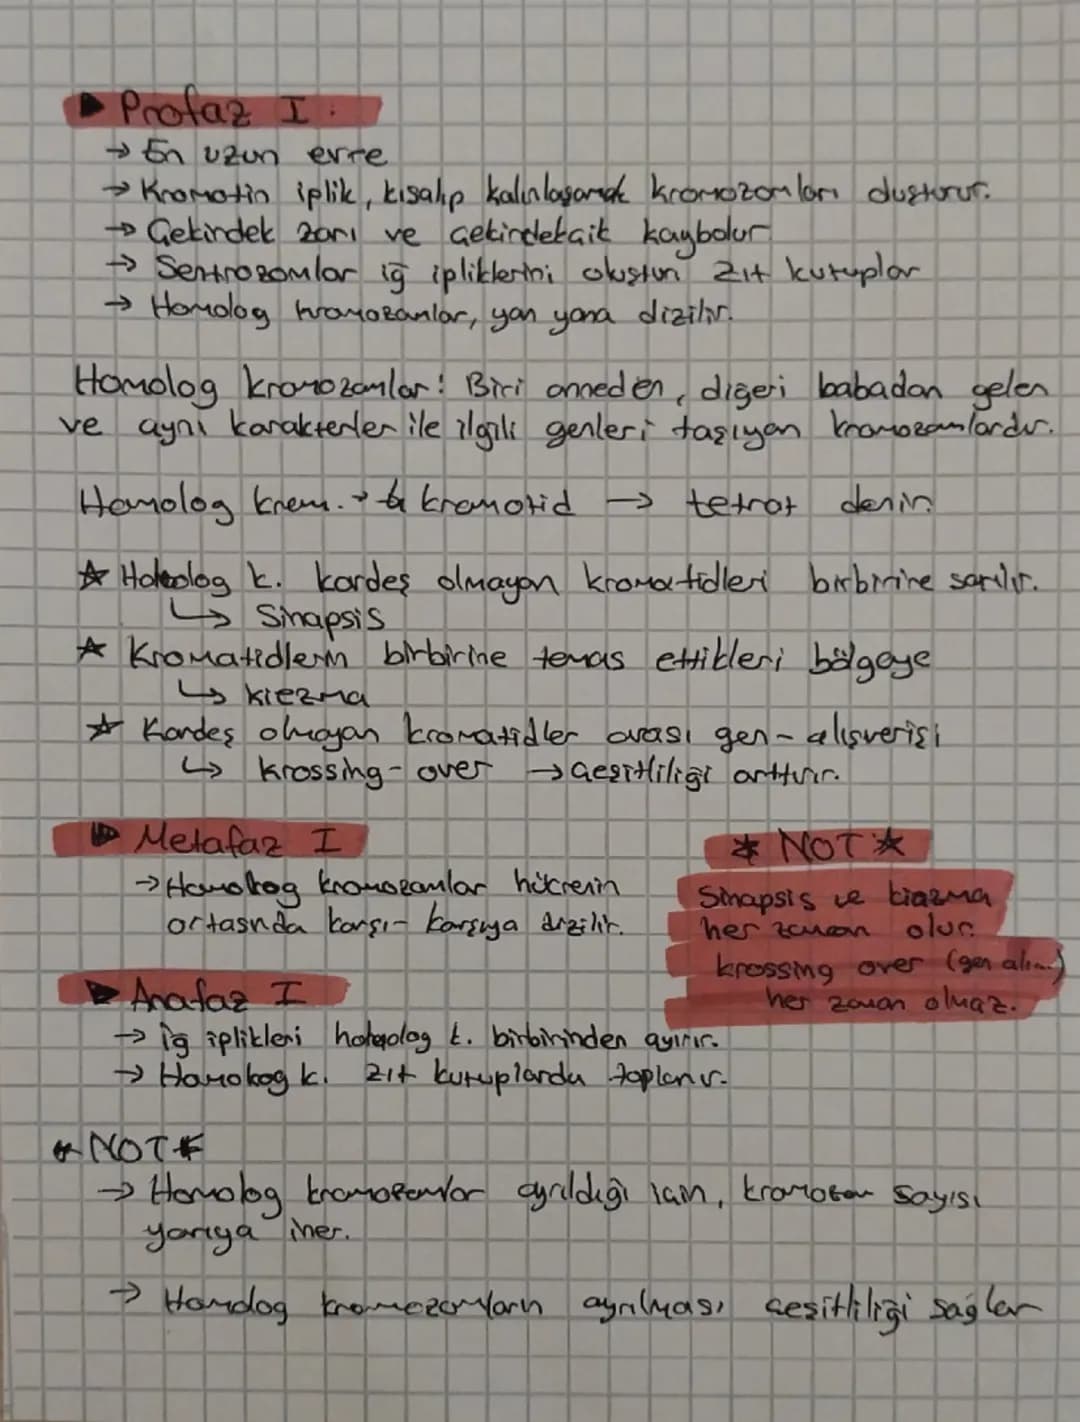 ▶ Profaz I :
→ En uzun evre
→ Kromatin iplik, kısalıp kalınlaşarak kromozomları oluşturur.
→ Çekirdek zarı ve çekirdekçik kaybolur
→ Sentrozomlar iğ ipliklerini oluştur zıt kutuplar
→ Homolog kromozomlar, yan yana dizilir.
Homolog kromozomlar: Biri anneden, diğeri babadan gelen
ve aynı karakterler ile ilgili genleri taşıyan kromozomlardır.
Homolog krom. → 4 kromatid → tetrat denir.
☆ Homolog k. kardeş olmayan kromatidleri birbirine sarılır.
↳ Sinapsis
☆ Kromatidlerin birbirine temas ettikleri bölgeye
↳ kiezma
☆ Kardeş olmayan kromatidler arası gen-alışverişi
↳ Krossing-over → Çeşitliliği arttırır.
▶ Metafaz I
→ Homolog kromozomlar hücrenin
ortasında karşı-karşıya dizilir.
* NOT ☆
Sinapsis ve kiazma
her zaman olur.
krossing over (gen alım..)
her zaman olmaz.
▶ Anafaz I
→ iğ iplikleri homolog k. birbirinden ayırır.
→ Homolog k. zıt kutuplarda toplanır.
* NOT *
→ Homolog kromozomlar ayrıldığı için, kromozom sayısı
yarıya iner.
→ Homolog kromozomların ayrılması çeşitliliği sağlar